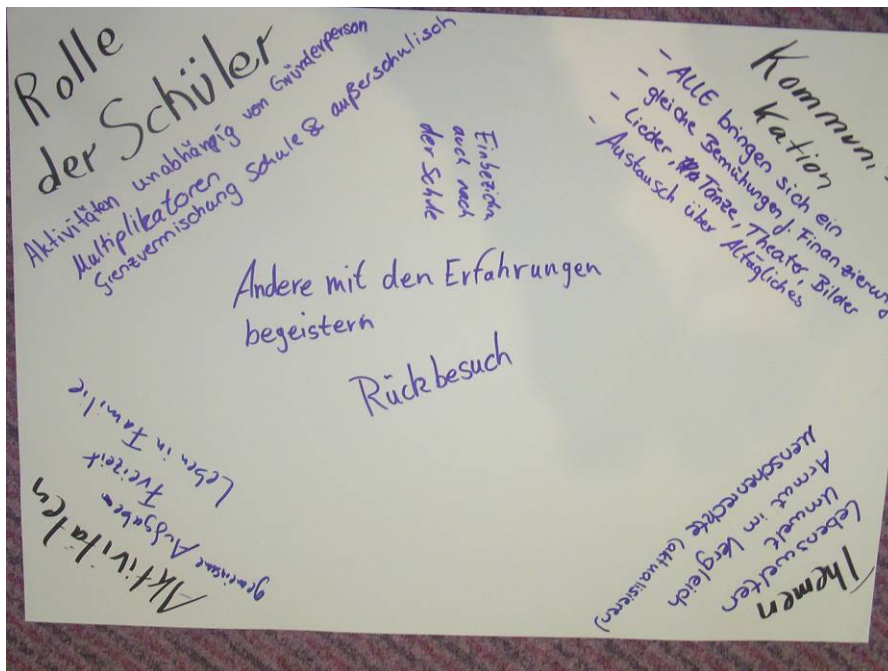 Rolle
der Schüler
Aktivitäten unabhängig von Gründerperson
Multiplikatoren
Grenzvermischung Schule & außerschulisch
Kommuni-
kation
- ALLE bringen sich ein
- gleiche Bemühungen f. Finanzierung
- Lieder, Tänze, Theater, Bilder
- Austausch über Alltägliches
Einbeziehn
auch nach
der Schule
Andere mit den Erfahrungen
begeistern
Rückbesuch
Aktivitäten
gemeinsame Aufgaben
Freizeit
Leben in Familie
Themen
Lebenswelten
Umwelt
Armut im Vergleich
Menschenrechte (aktualisieren)